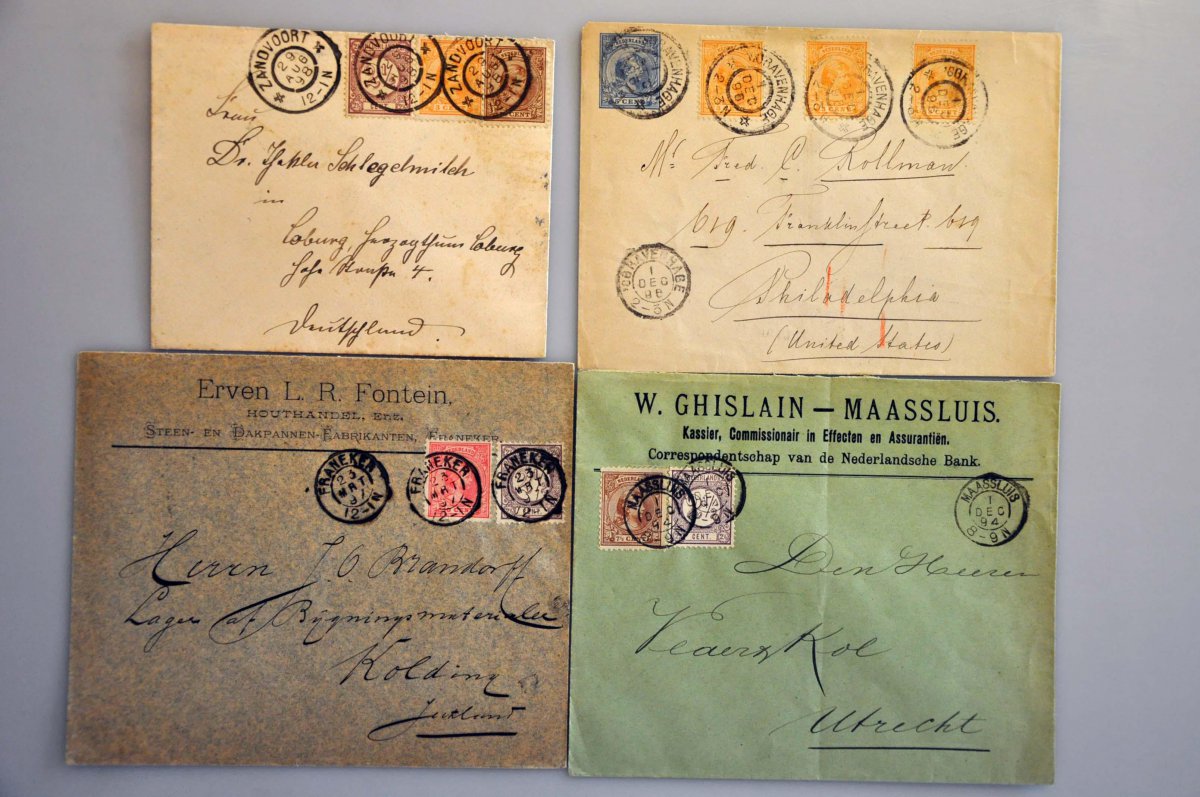 ZANDVOORT
29
AUG
98
12-1N
ZANDVOORT
ZANDVOORT
12-1N
CENT
Frau
Dr. Schlegelmilch
in
Coburg, Herzogthum Coburg
Hohe Straße 4.
Deutschland.
NEDERLAND
CENT
'SGRAVENHAGE
1
DEC
98
2-5N
Mr Fred. C. Rollman
619. Franklin Street. 619
Philadelphia
(United States)
'SGRAVENHAGE
1
DEC
98
2-5N
Erven L. R. Fontein,
HOUTHANDEL, Enz.
STEEN- EN DAKPANNEN-FABRIKANTEN, FRANEKER.
FRANEKER
23
MRT
97
12-1N
FRANEKER
23
MRT
97
12-1N
FRANEKER
23
12-1N
Herrn J. O. Brandorff
Lager af Bygningsmaterialer
Kolding
Jutland
W. GHISLAIN — MAASSLUIS.
Kassier, Commissionair in Effecten en Assurantiën.
Correspondentschap van de Nederlandsche Bank.
MAASSLUIS
1
DEC
94
8-9N
MAASSLUIS
CENT.
MAASSLUIS
1
DEC
94
8-9N
Den Heeren
Kol
Utrecht